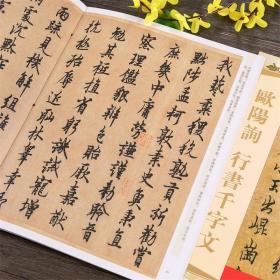 我藝黍稷稅熟貢新勸賞
黜陟孟軻敦素史魚秉直
庶幾中庸勞謙謹勅聆音
察理鑑貌辨色貽厥嘉猷
勉其祗植省躬譏誡寵增
抗極殆辱近恥林皋幸即
兩疏見機解組
沈默
歐陽詢 行書千字文
出崑崗